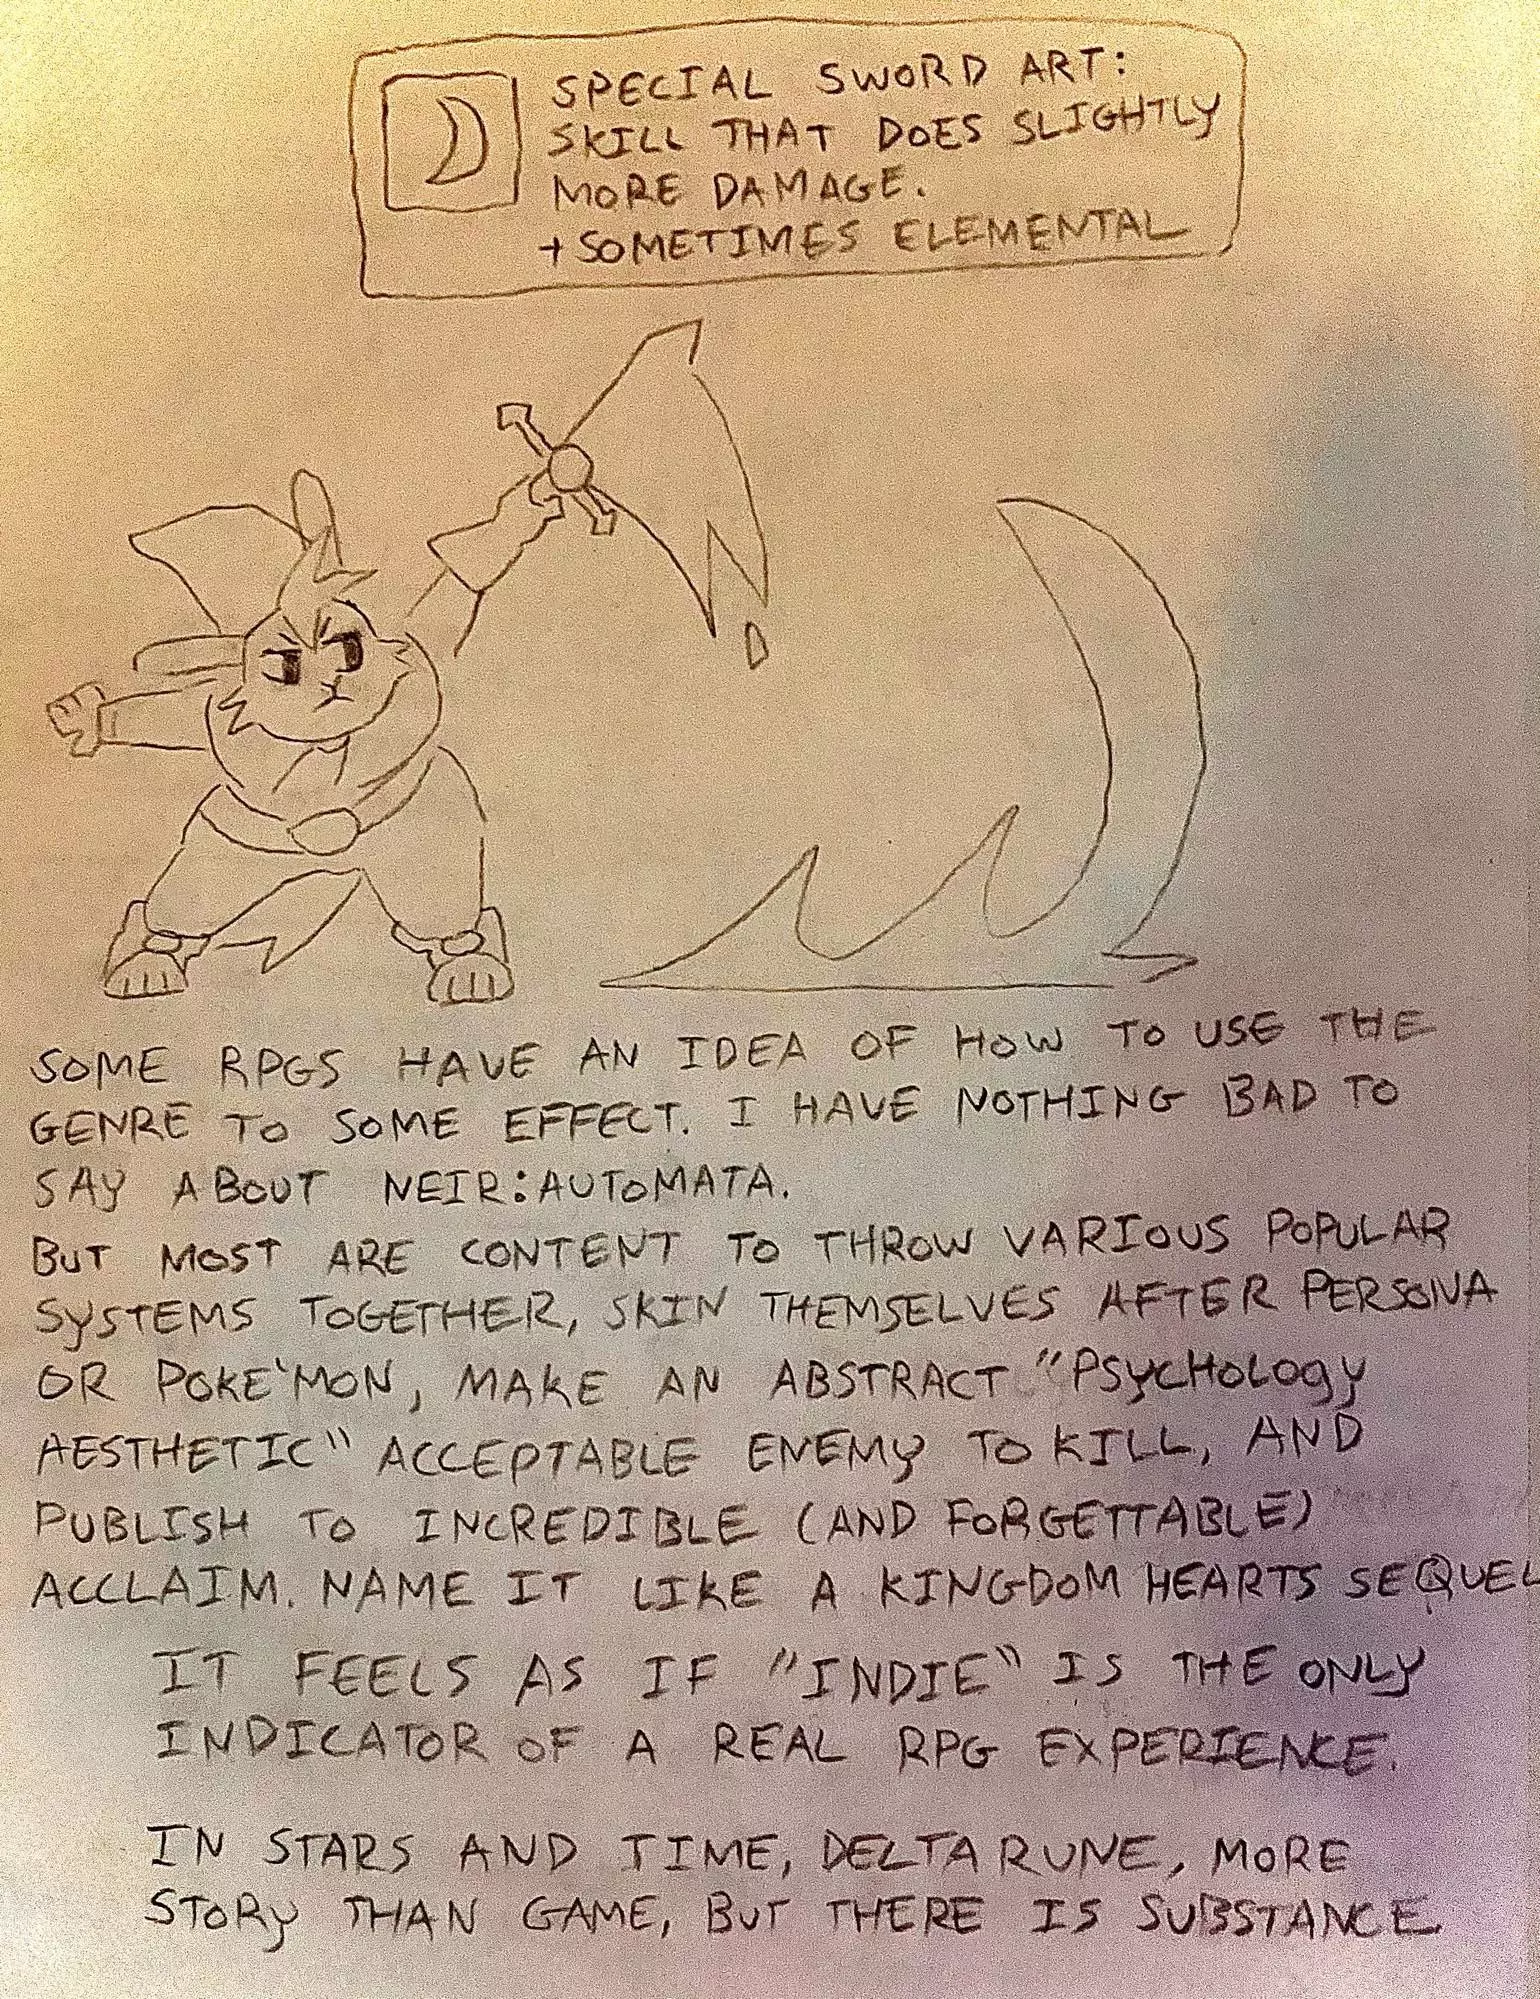 SPECIAL SWORD ART:
SKILL THAT DOES SLIGHTLY
MORE DAMAGE.
+SOMETIMES ELEMENTAL
SOME RPGS HAVE AN IDEA OF HOW TO USE THE
GENRE TO SOME EFFECT. I HAVE NOTHING BAD TO
SAY ABOUT NEIR:AUTOMATA.
BUT MOST ARE CONTENT TO THROW VARIOUS POPULAR
SYSTEMS TOGETHER, SKIN THEMSELVES AFTER PERSONA
OR POKE'MON, MAKE AN ABSTRACT "PSYCHOLOGY
AESTHETIC" ACCEPTABLE ENEMY TO KILL, AND
PUBLISH TO INCREDIBLE (AND FORGETTABLE)
ACCLAIM. NAME IT LIKE A KINGDOM HEARTS SEQUEL
IT FEELS AS IF "INDIE" IS THE ONLY
INDICATOR OF A REAL RPG EXPERIENCE.
IN STARS AND TIME, DELTARUNE, MORE
STORY THAN GAME, BUT THERE IS SUBSTANCE.